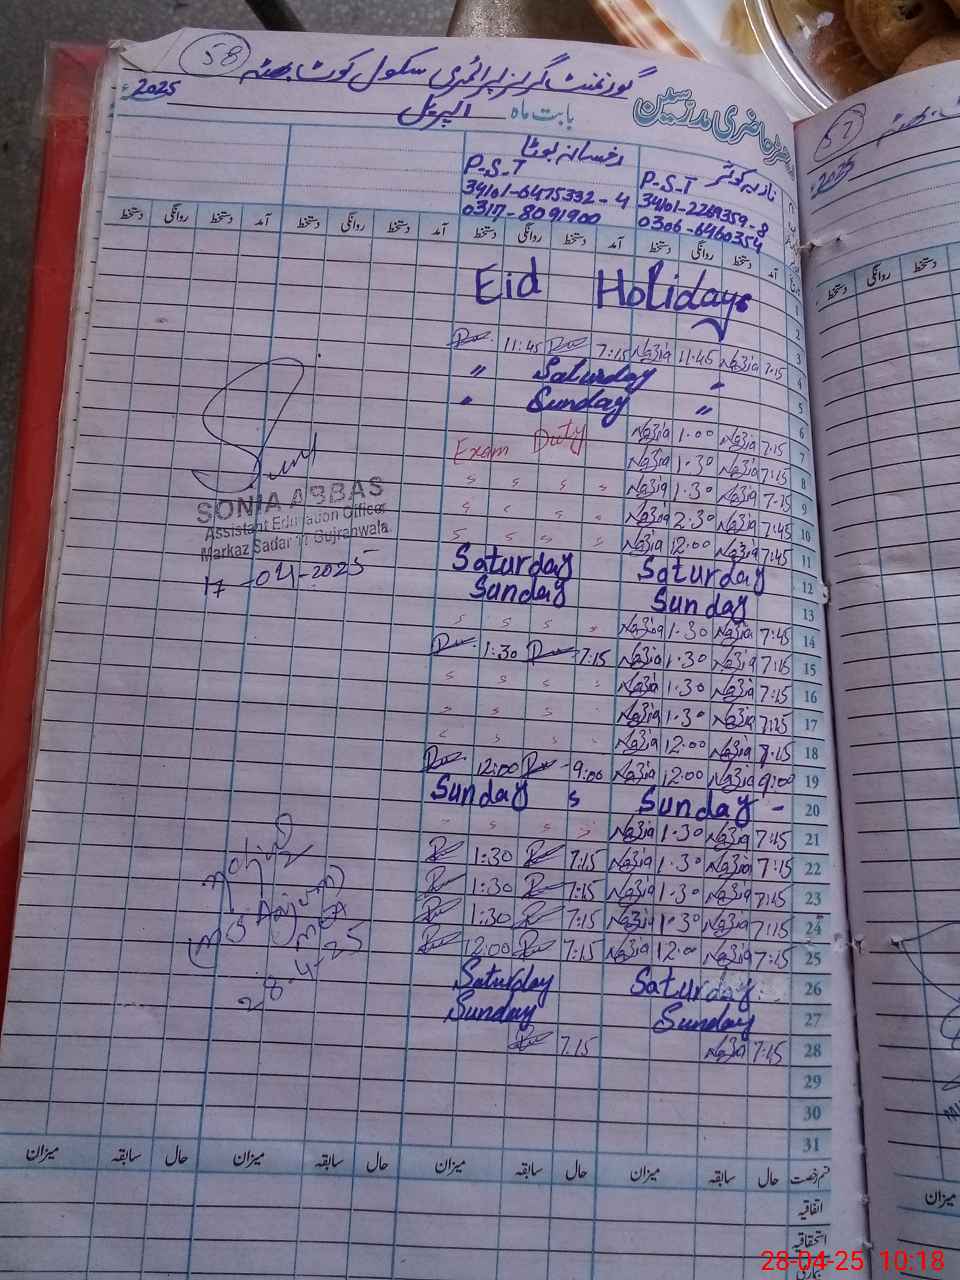 58
گورنمنٹ گرلز پرائمری سکول کوٹ بھٹہ
رجسٹر حاضری مدرسین
بابت ماہ اپریل 2025ء
نازیہ کوثر رخسانہ بوٹا
P-S-T P-S-T
34101-2269359-8 34101-6475332-4
0306-6460354 0317-8091900
آمد دستخط روانگی دستخط آمد دستخط روانگی دستخط آمد دستخط روانگی دستخط آمد دستخط روانگی دستخط
1 Eid Holidays
2
3 11:45 7:15 Nazia 11.45 Nazia 7:15
4 " Saturday "
5 " Sunday "
6
7 Exam Duty Nazia 1.00 Nazia 7:15
8 Nazia 1.30 Nazia 7:15
9 Nazia 1.30 Nazia 7:15
10 Nazia 2.30 Nazia 7:45
11 Nazia 12.00 Nazia 7:45
12 Saturday Saturday
13 Sunday Sunday
14 Nazia 1.30 Nazia 7:45
15 1:30 7:15 Nazia 1.30 Nazia 7:15
16 Nazia 1.30 Nazia 7:15
17 Nazia 1.30 Nazia 7:15
18 Nazia 12.00 Nazia 7.15
19 12:00 9:00 Nazia 12:00 Nazia 9:00
20 Sunday Sunday -
21 Nazia 1.30 Nazia 7:15
22 1:30 7:15 Nazia 1.30 Nazia 7:15
23 1:30 7:15 Nazia 1.30 Nazia 7:15
24 1:30 7:15 Nazia 1.30 Nazia 7:15
25 12:00 7:15 Nazia 12.00 Nazia 7:15
26 Saturday Saturday
27 Sunday Sunday
28 7:15 Nazia 7:15
29
30
31
SONIA ABBAS
Assistant Education Officer
Markaz Sadar Gujranwala
17-04-2025
Anjum
MEA
28-4-25
قسم رخصت حال سابقہ میزان حال سابقہ میزان حال سابقہ میزان حال سابقہ میزان
اتفاقیہ
استحقاقیہ
بیماری
57
2025
دستخط روانگی دستخط
میزان
28-04-25 10:18